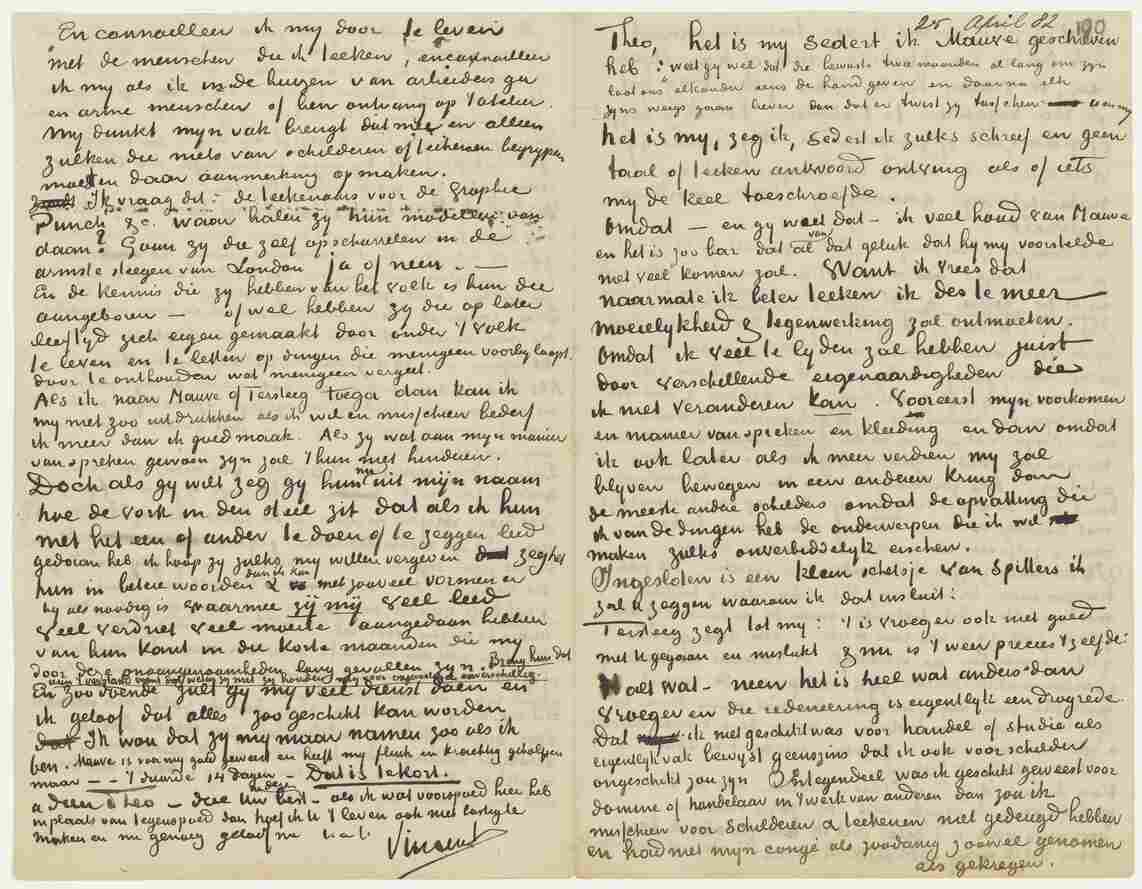 En cannailleer ik my door te leven
met de menschen die ik teeken, encannailleer
ik my als ik in de huizen van arbeiders ga
en arme menschen of hen ontvang op 't atelier.
My dunkt myn vak brengt dat mee en alleen
zulken die niets van schilderen of teekenen begrypen
moeten daar aanmerking op maken.
Ik vraag dit: de teekenaars voor de Graphic
Punch &c. waar halen zy hun modellen van
daan? Gaan zy die zelf opscharrelen in de
armste steegen van London ja of neen. —
En de kennis die zy hebben van het volk is hun die
aangeboren — of wel hebben zy die op later
leeftyd zich eigen gemaakt door onder 't volk
te leven en te letten op dingen die menigeen voorby loopt
door te onthouden wat menigeen vergeet.
Als ik naar Mauve of Tersteeg toega dan kan ik
my niet zoo uitdrukken als ik wil en misschien bederf
ik meer dan ik goed maak. Als zy wat aan myn manier
van spreken gewoon zyn zal 't hun niet hinderen.
Doch als gy wilt zeg gy hun nu uit mijn naam
hoe de vork in den steel zit dat als ik hun
met het een of ander te doen of te zeggen leed
gedaan heb ik hoop zy zulks my willen vergeven zeg het
hun in betere woorden dan ik kan & met zooveel vormen er
by als noodig is waarmee zij mij veel leed
veel verdriet veel moeite aangedaan hebben
van hun kant in die korte maanden die my
door deze onaangenaamheden lang gevallen zyn. Breng hun dat
aan 't verstand want dat weten zy niet zy houden my voor ongevoelig en onverschillig.
En zoodoende zult gy my veel dienst doen en
ik geloof dat alles zoo geschikt kan worden
Ik wou dat zy my maar namen zoo als ik
ben. Mauve is voor my goed geweest en heeft my flink en krachtig geholpen
maar — — 't duurde 14 dagen — Dat is te kort.
adieu Theo — doe in deze uw best — als ik wat voorspoed hier heb
in plaats van tegenspoed dan hoef ik U 't leven ook niet lastig te
maken en nu genoeg geloof me t. à t.
Vincent
25 April 82
190
Theo, het is my sedert ik Mauve geschreven
heb: "weet gy wel dat die bewuste twee maanden al lang om zyn
laat ons elkander eens de hand geven en daarna elk
zyns weegs gaan liever dan dat er twist zy tusschen U en my"
het is my, zeg ik, sedert ik zulks schreef en geen
taal of teeken antwoord ontving als of iets
my de keel toeschroefde.
Omdat — en gy weet dat — ik veel houd van Mauve
en het is zoo hard dat al van dat geluk dat hy my voorstelde
niet veel komen zal. Want ik vrees dat
naarmate ik beter teeken ik des te meer
moeielykheid & tegenwerking zal ontmoeten.
Omdat ik veel te lyden zal hebben juist
door verschillende eigenaardigheden die
ik niet veranderen kan. Vooreerst myn voorkomen
en manier van spreken en kleeding en dan omdat
ik ook later als ik meer verdien my zal
blyven bewegen in een anderen kring dan
de meeste andre schilders omdat de opvatting die
ik van de dingen heb de onderwerpen die ik wil
maken zulks onverbiddelyk eischen.
Ingesloten is een klein schetsje van spitters ik
zal u zeggen waarom ik dat insluit:
Tersteeg zegt tot my: 't is vroeger ook niet goed
met U gegaan en mislukt & nu is 't weer precies 't zelfde:
Halt wat — neen het is heel wat anders dan
vroeger en die redeneering is eigentlyk een drogrede.
Dat ik niet geschikt was voor handel of studie als
eigentlyk vak bewyst geenszins dat ik ook voor schilder
ongeschikt zou zyn. Integendeel was ik geschikt geweest voor
dominé of handelaar in 't werk van anderen dan zou ik
misschien voor schilderen & teekenen niet gedeugd hebben
en had niet mijn congé als zoodanig zoowel genomen
als gekregen.